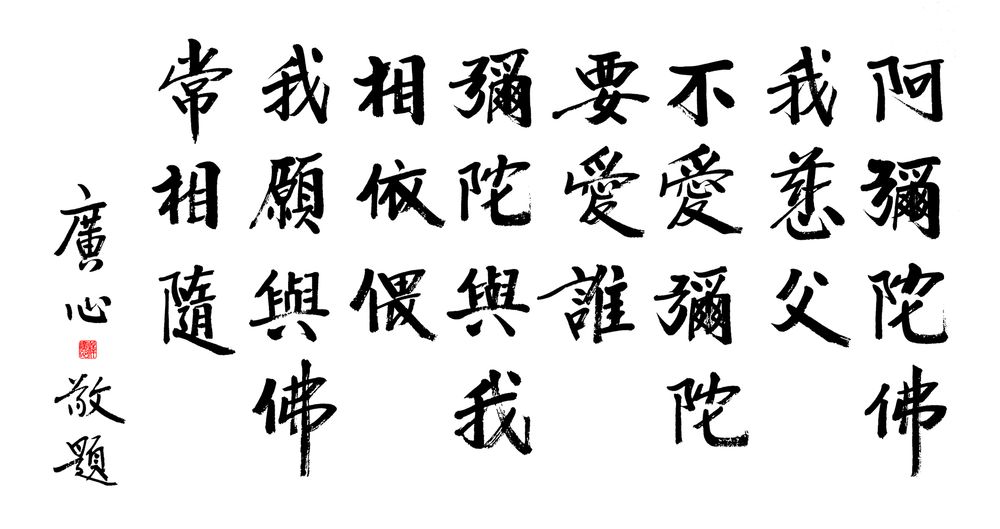 阿彌陀佛
我慈父
不愛彌陀
要愛誰
彌陀與我
相依偎
我願與佛
常相隨
廣心敬題